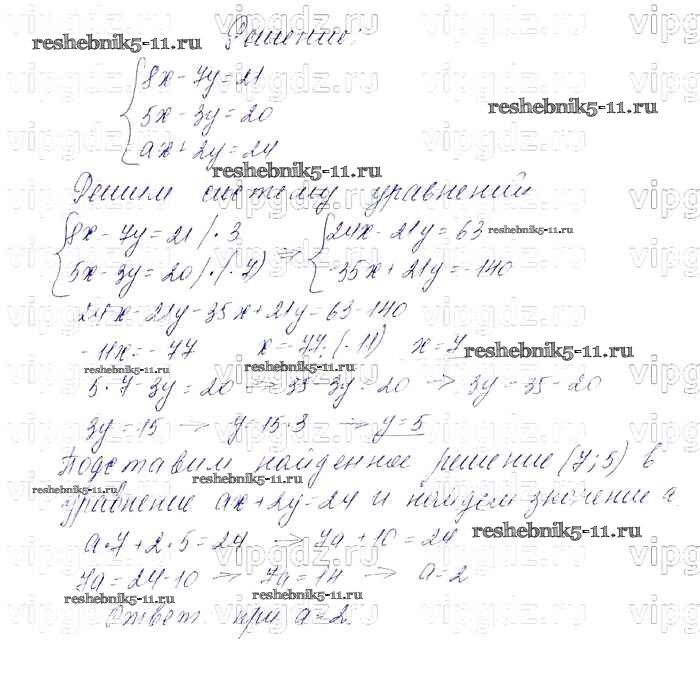 Решение:
{8x - 7y = 21
5x - 3y = 20
ax + 2y = 24
Решим систему уравнений
{8x - 7y = 21 | · 3 => {24x - 21y = 63
5x - 3y = 20 | · (-7) -35x + 21y = -140
24x - 21y - 35x + 21y = 63 - 140
-11x = -77 x = -77 : (-11) x = 7
5 · 7 - 3y = 20 -> 35 - 3y = 20 -> 3y = 35 - 20
3y = 15 -> y = 15 : 3 -> y = 5
Подставим найденное решение (7; 5) в
уравнение ax + 2y = 24 и найдем значение a.
a · 7 + 2 · 5 = 24 -> 7a + 10 = 24
7a = 24 - 10 -> 7a = 14 -> a = 2
Ответ: при a = 2.
reshebnik5-11.ru
reshebnik5-11.ru
reshebnik5-11.ru
reshebnik5-11.ru
reshebnik5-11.ru
reshebnik5-11.ru
reshebnik5-11.ru
reshebnik5-11.ru
reshebnik5-11.ru
reshebnik5-11.ru
reshebnik5-11.ru
vipgdz.ru